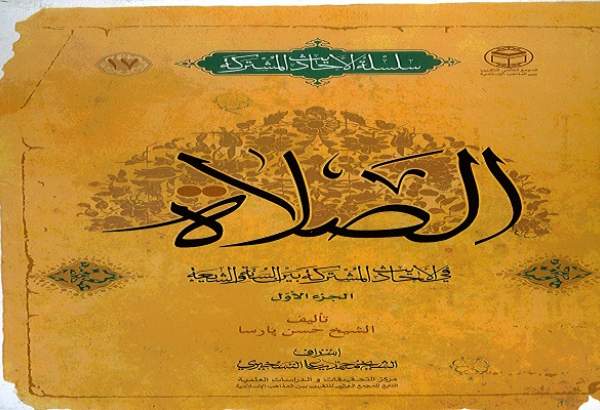 سلسلة الأحاديث المشتركة
١٧
المجمع العالمي للتقريب
بين المذاهب الإسلامية
الصلاة
في الأحاديث المشتركة بين السنة والشيعة
الجزء الأول
تأليف
الشيخ حسن پارسا
إشراف
الشيخ محمد علي التسخيري
مركز التحقيقات و الدراسات العلمية
التابع للمجمع العالمي للتقريب بين المذاهب الإسلامية